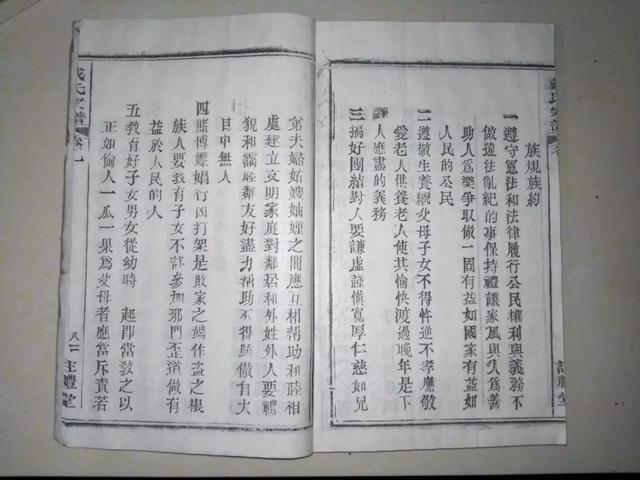 族規族約
一遵守憲法和法律履行公民權利與義務不
做違法亂紀的事保持禮讓家風與人為善
助人為樂爭取做一固有益如國家有益如
人民的公民
二遵敬生養繼父母子女不得忤逆不孝應敬
愛老人供養老人使其愉快渡過晚年是下
人應盡的義務
三搞好團結對人要謙虛謹慎寬厚仁慈如兄
弟夫婦姑嫂妯娌之間應互相幫助和睦相
處建立文明家庭對鄰居和外姓外人要禮
貌和靄睦鄰友好盡力幫助不得驕傲自大
目中無人
四賭博嫖娼行凶打架是敗家之端作盜之根
族人要教育子女不許參加邪門歪道做有
益於人民的人
五教育好子女男女從幼時 起即當教之以
正如偷人一瓜一果為父母者應當斥責若
氏宗譜
卷一
八一
注禮堂